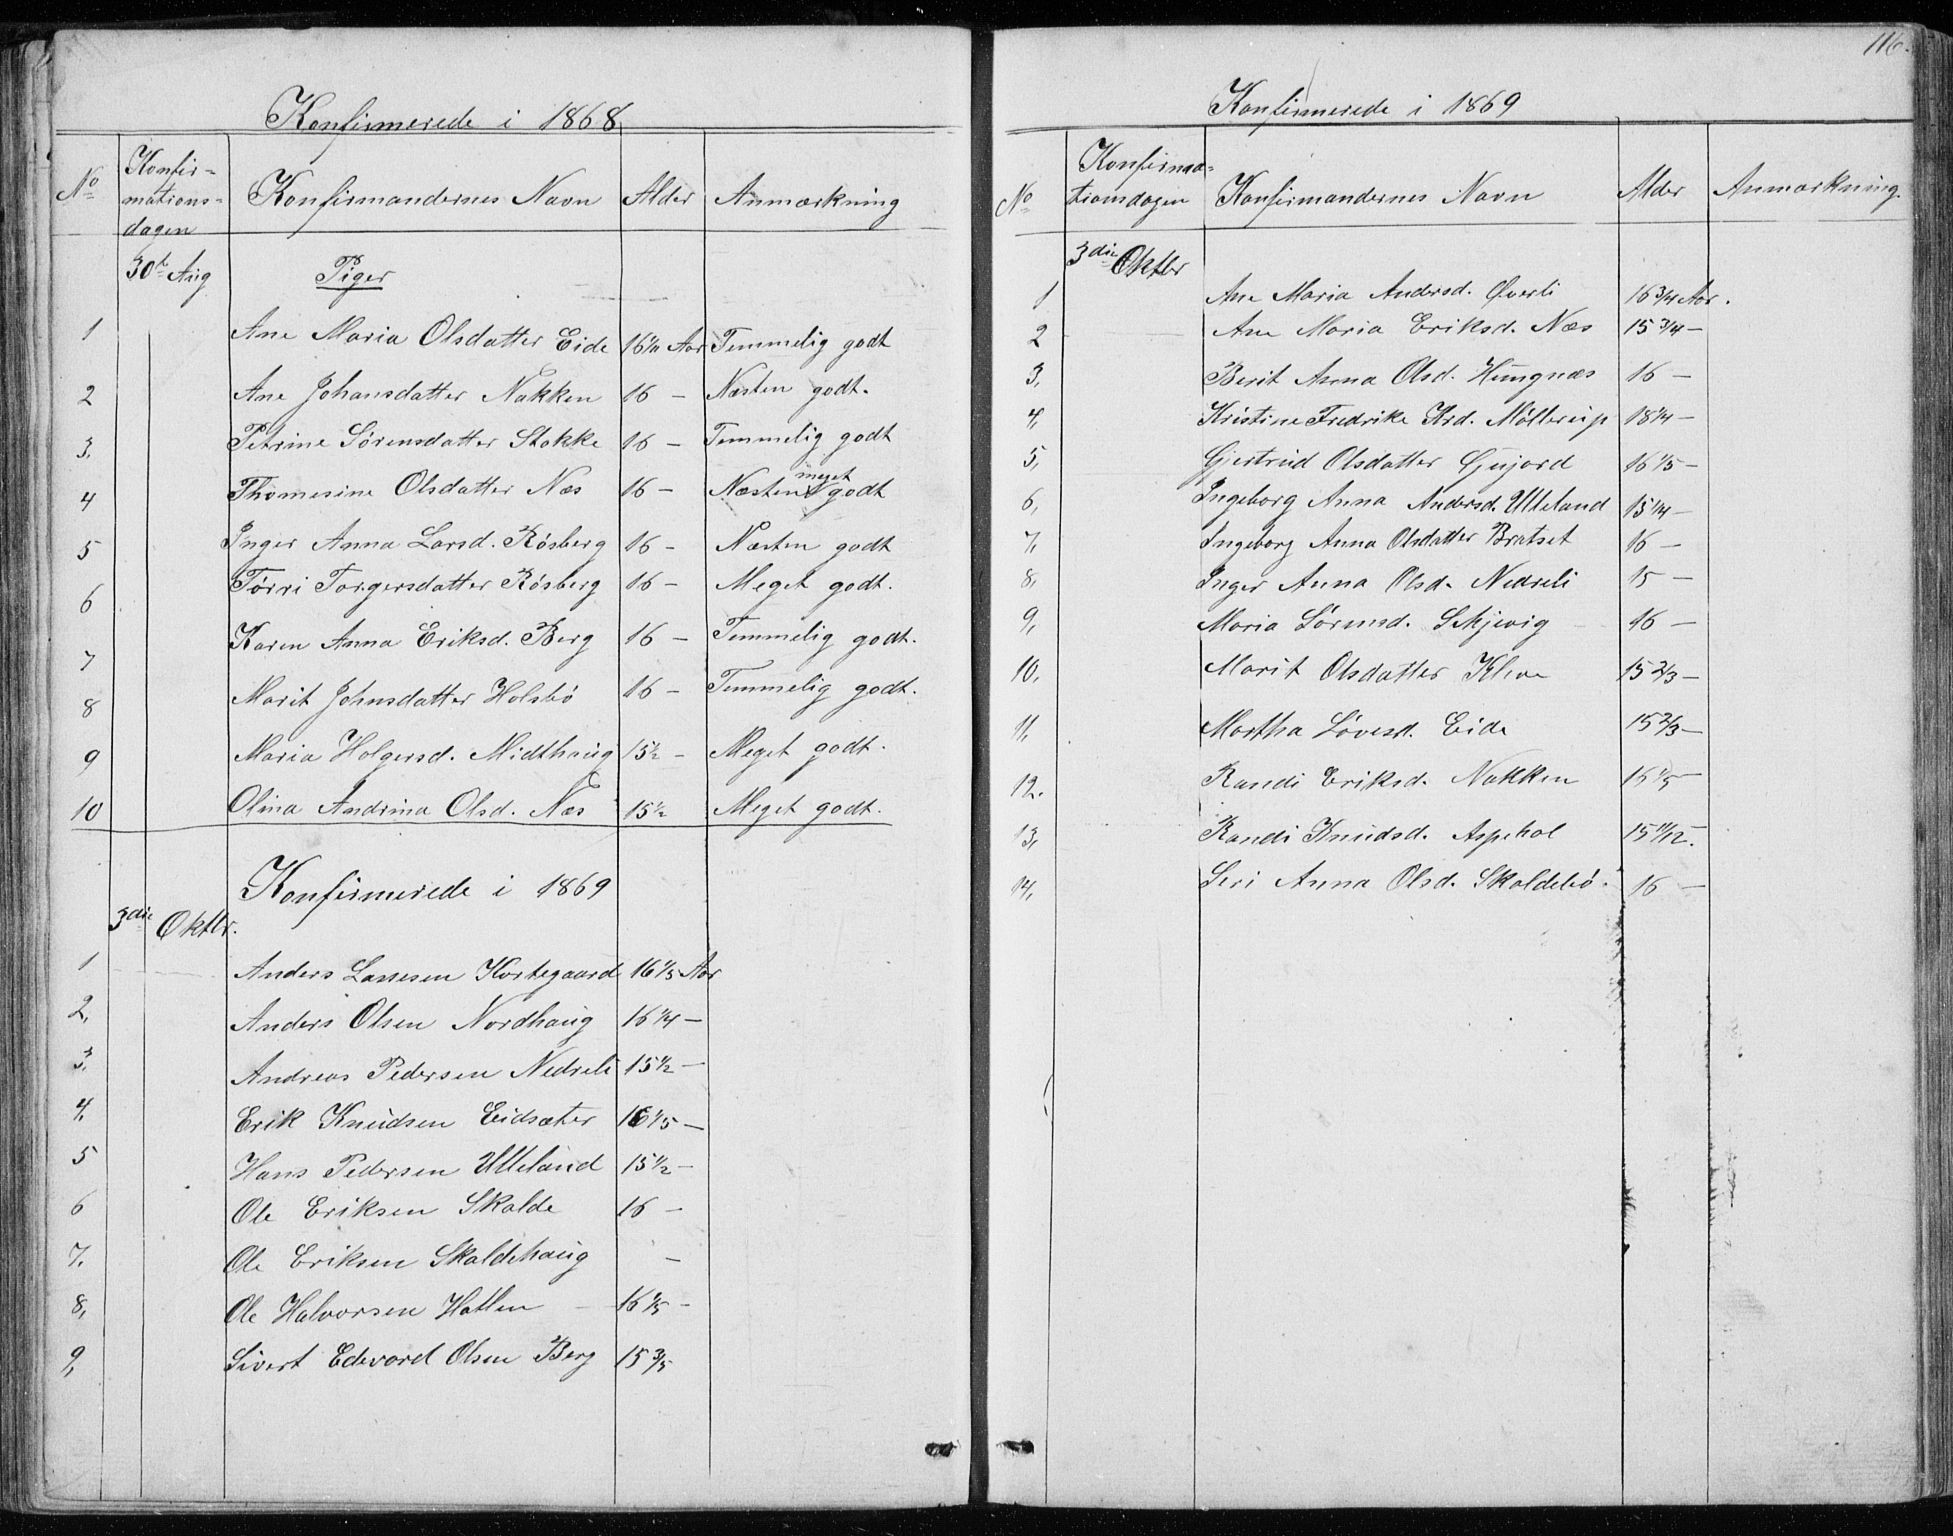 Konfirmerede i 1868
No
Konfir=
mations=
dagen
Konfirmandernes Navn
Alder
Anmærkning
30t Aug
Piger
1 Ane Maria Olsdatter Eide Aar Temmelig godt
2 Ane Johansdatter Nakken 16 – Næsten godt.
3. Petrine Sørensdatter Stokke 16 – Temmelig godt
4 Thomesine Olsdatter Næs 16 – Næsten meget godt
5 Inger Anna Larsd. Rösberg 16 – Næsten godt
6 Törri Torgersdatter Rösberg 16 – Meget godt.
7 Karen Anna Eriksd. Berg 16 – Temmelig godt.
8 Marit Johnsdatter Holsbö 16 – Temmelig godt.
9 Maria Holgersd. Midthaug 15½ – Meget godt.
10 Olina Andrina Olsd. Næs 15½ Meget godt.
Konfirmerede i 1869
3die Oktbr.
1 Anders Lassesen Kortegaard 16 1/5 Aar
2, Anders Olsen Nordhaug 16 1/4 –
3, Andreas Pedersen Nedreli 15 1/2 –
4, Erik Knudsen Eidsæter 16 1/5 –
5 Hans Pedersen Ulleland 15 1/2 –
6 Ole Eriksen Skalde 16 –
7. Ole Eriksen Skaldehaug –
8, Ole Halvorsen Hatlen – 16 1/5 –
9, Sivert Edevard Olsen Berg 15 3/5
116.
Konfirmerede i 1869
No
Konfirma=
tionsdagen
Konfirmandernes Navn
Alder
Anmærkning.
3die Oktbr
1 Ane Maria Andersd. Øverli 16 3/4 Aar.
2 Ane Maria Eriksd. Næs 15 3/4 –
3, Berit Anna Olsd. Hungnæs 16 –
4, Kristine Fredrike Krd. Möllerup 18 1/4 –
5, Gjertrud Olsdatter Gujord 16 1/5 –
6, Ingeborg Anna Andersd. Ulleland 15 1/4 –
7, Ingeborg Anna Olsdatter Bratset 16 –
8, Inger Anna Olsd. Nedreli 15 –
9, Maria Sörensd. Schjevig 16 –
10, Marit Olsdatter Kleve 15 2/3 –
11, Martha Lövesd. Eide 15 2/3 –
12. Randi Eriksd. Nakken 16 1/5 –
13, Randi Knudsd. Aspehol 15 11/12.
14, Seri Anna Olsd. Skaldebö. 16 –